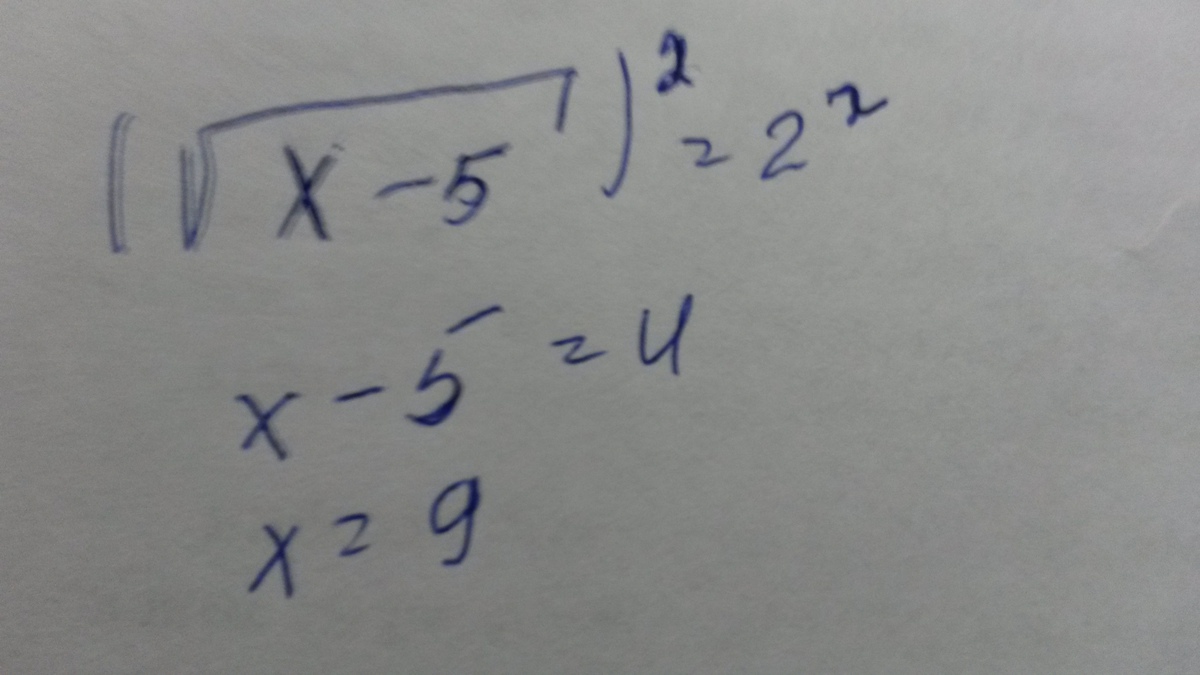 (√(x-5))² = 2²
x - 5 = 4
x = 9